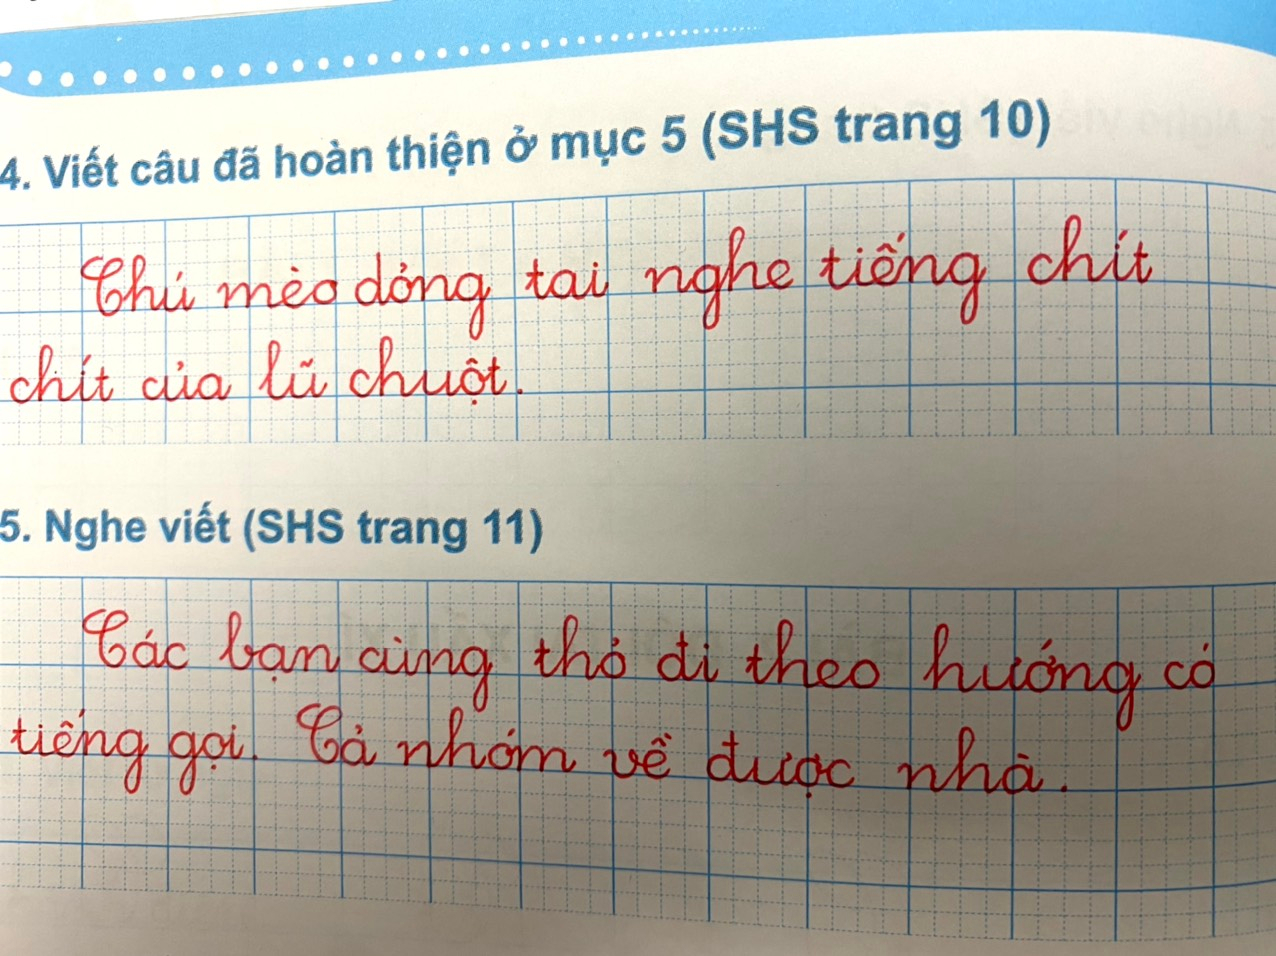 4. Viết câu đã hoàn thiện ở mục 5 (SHS trang 10)
Chú mèo dỏng tai nghe tiếng chít
chít của lũ chuột.
5. Nghe viết (SHS trang 11)
Các bạn cùng thỏ đi theo hướng có
tiếng gọi. Cả nhóm về được nhà.